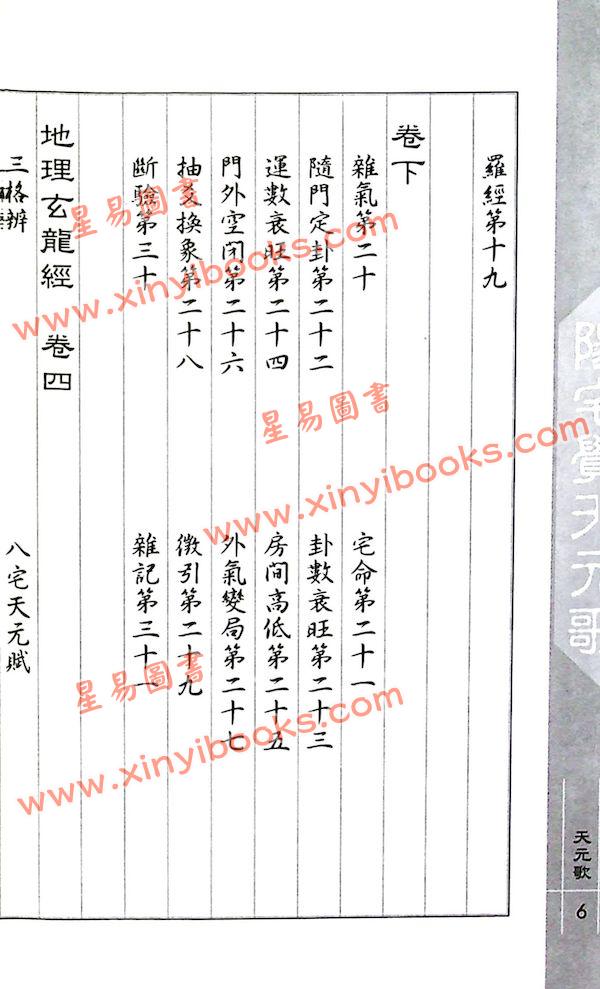 陽宅覺天元歌
天元歌
6
羅經第十九
卷下
雜氣第二十 宅命第二十一
隨門定卦第二十二 卦數衰旺第二十三
運數衰旺第二十四 房間高低第二十五
門外空閉第二十六 外氣變局第二十七
抽爻換象第二十八 徵引第二十九
斷驗第三十 雜記第三十一
地理玄龍經 卷四
三格辨 八宅天元賦
星易圖書
www.xinyibooks.com
星易圖書
www.xinyibooks.com
星易圖書
www.xinyibooks.com